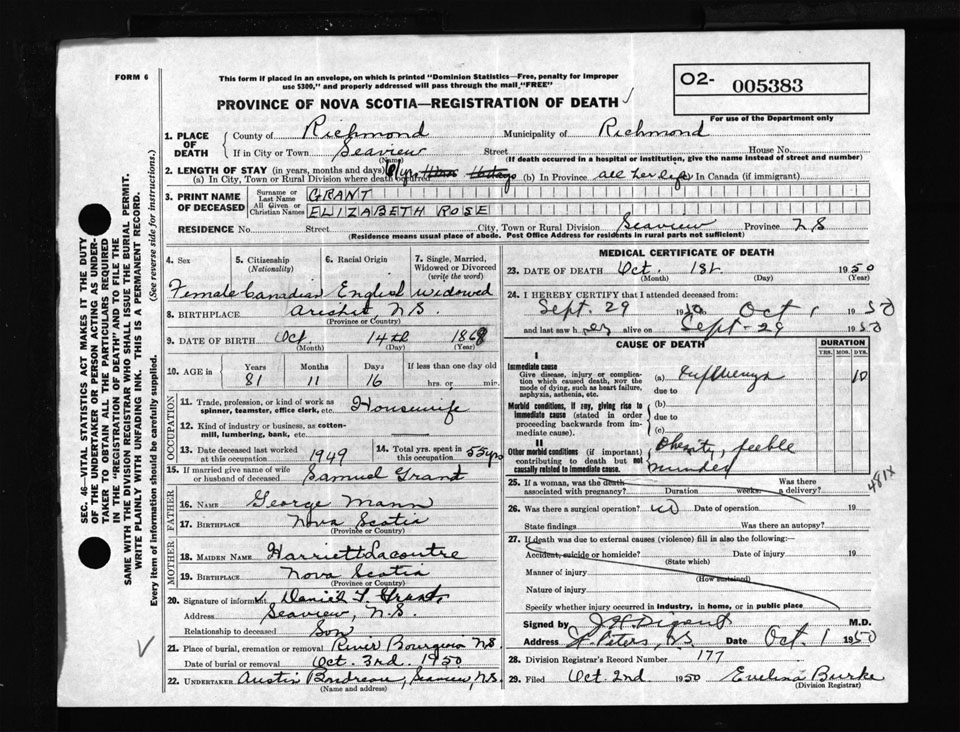 FORM 6
This form if placed in an envelope, on which is printed "Dominion Statistics—Free, penalty for improper
use $300," and properly addressed will pass through the mail "FREE"
O2- 005383
For use of the Department only
PROVINCE OF NOVA SCOTIA—REGISTRATION OF DEATH
SEC. 46—VITAL STATISTICS ACT MAKES IT THE DUTY
OF THE UNDERTAKER OR PERSON ACTING AS UNDER-
TAKER TO OBTAIN ALL THE PARTICULARS REQUIRED
IN THE "REGISTRATION OF DEATH" AND TO FILE THE
SAME WITH THE DIVISION REGISTRAR WHO SHALL ISSUE THE BURIAL PERMIT.
WRITE PLAINLY WITH UNFADING INK. THIS IS A PERMANENT RECORD.
Every item of information should be carefully supplied. (See reverse side for instructions.)
1. PLACE OF DEATH { County of Richmond Municipality of Richmond
If in City or Town Seaview Street House No.
(Name) (If death occurred in a hospital or institution, give the name instead of street and number)
2. LENGTH OF STAY (in years, months and days)
(a) In City, Town or Rural Division where death occurred (b) In Province all her life In Canada (if immigrant)
3. PRINT NAME OF DECEASED { Surname or Last Name GRANT
All Given or Christian Names ELIZABETH ROSE
RESIDENCE No. Street City, Town or Rural Division Seaview Province N S
(Residence means usual place of abode. Post Office Address for residents in rural parts not sufficient)
4. Sex 5. Citizenship (Nationality) 6. Racial Origin 7. Single, Married, Widowed or Divorced (write the word)
Female Canadian English widowed
8. BIRTHPLACE Arichat N.S.
(Province or Country)
9. DATE OF BIRTH Oct. 14th 1868
(Month) (Day) (Year)
10. AGE in Years Months Days If less than one day old
81 11 16 hrs. or min.
OCCUPATION
11. Trade, profession, or kind of work as spinner, teamster, office clerk, etc. Housewife
12. Kind of industry or business, as cotton-mill, lumbering, bank, etc.
13. Date deceased last worked at this occupation 1949 14. Total yrs. spent in this occupation 55 yrs
15. If married give name of wife or husband of deceased Samuel Grant
FATHER
16. NAME George Mann
17. BIRTHPLACE Nova Scotia
(Province or Country)
MOTHER
18. MAIDEN NAME Harriett Lacoutre
19. BIRTHPLACE Nova Scotia
(Province or Country)
20. Signature of informant Daniel F. Grant
Address Seaview, N.S.
Relationship to deceased Son
21. Place of burial, cremation or removal River Bourgeois N.S.
Date of burial or removal Oct. 3rd. 1950
22. UNDERTAKER Austin Boudreau, Seaview, N.S.
(Name and address)
MEDICAL CERTIFICATE OF DEATH
23. DATE OF DEATH Oct. 1st. 1950
(Month) (Day) (Year)
24. I HEREBY CERTIFY that I attended deceased from:
Sept. 29 1950 to Oct 1 1950
and last saw her alive on Sept-29 1950
CAUSE OF DEATH DURATION
YRS. MOS. DYS.
I
Immediate cause
Give disease, injury or complication which caused death, NOT the mode of dying, such as heart failure, asphyxia, asthenia, etc. (a) Influenza 10
due to
Morbid conditions, if any, giving rise to immediate cause (stated in order proceeding backwards from immediate cause). (b)
due to
(c)
II
Other morbid conditions (if important) contributing to death but not causally related to immediate cause. Obesity, feeble
minded
481X
25. If a woman, was the death associated with pregnancy? Duration weeks. Was there a delivery?
26. Was there a surgical operation? no Date of operation 19
State findings Was there an autopsy?
27. If death was due to external causes (violence) fill in also the following:—
Accident, suicide or homicide? Date of injury 19
(State which)
Manner of injury
(How sustained)
Nature of injury
Specify whether injury occurred in industry, in home, or in public place
Signed by M.D.
Address St. Peters, N.S. Date Oct. 1 1950
28. Division Registrar's Record Number 177
29. Filed Oct. 2nd 1950 Evelina Burke
(Division Registrar)